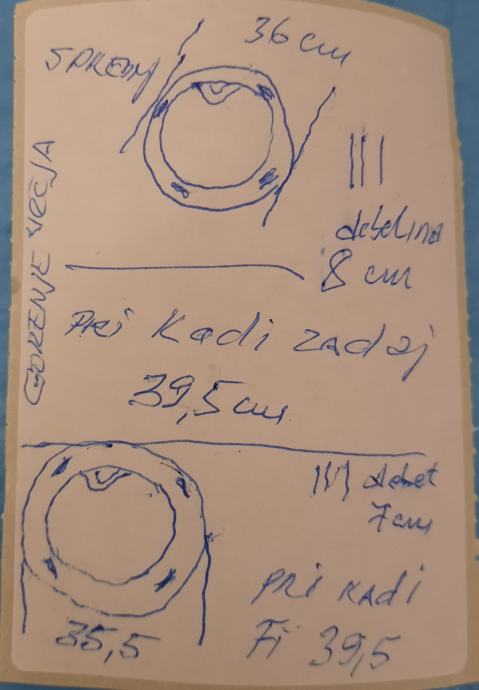 36 cm
SPREDAJ
GORENJE VEČJA
debelina
8 cm
PRI KADI ZADAJ
39,5 cm
debel
7 cm
PRI KADI
35,5
FI 39,5